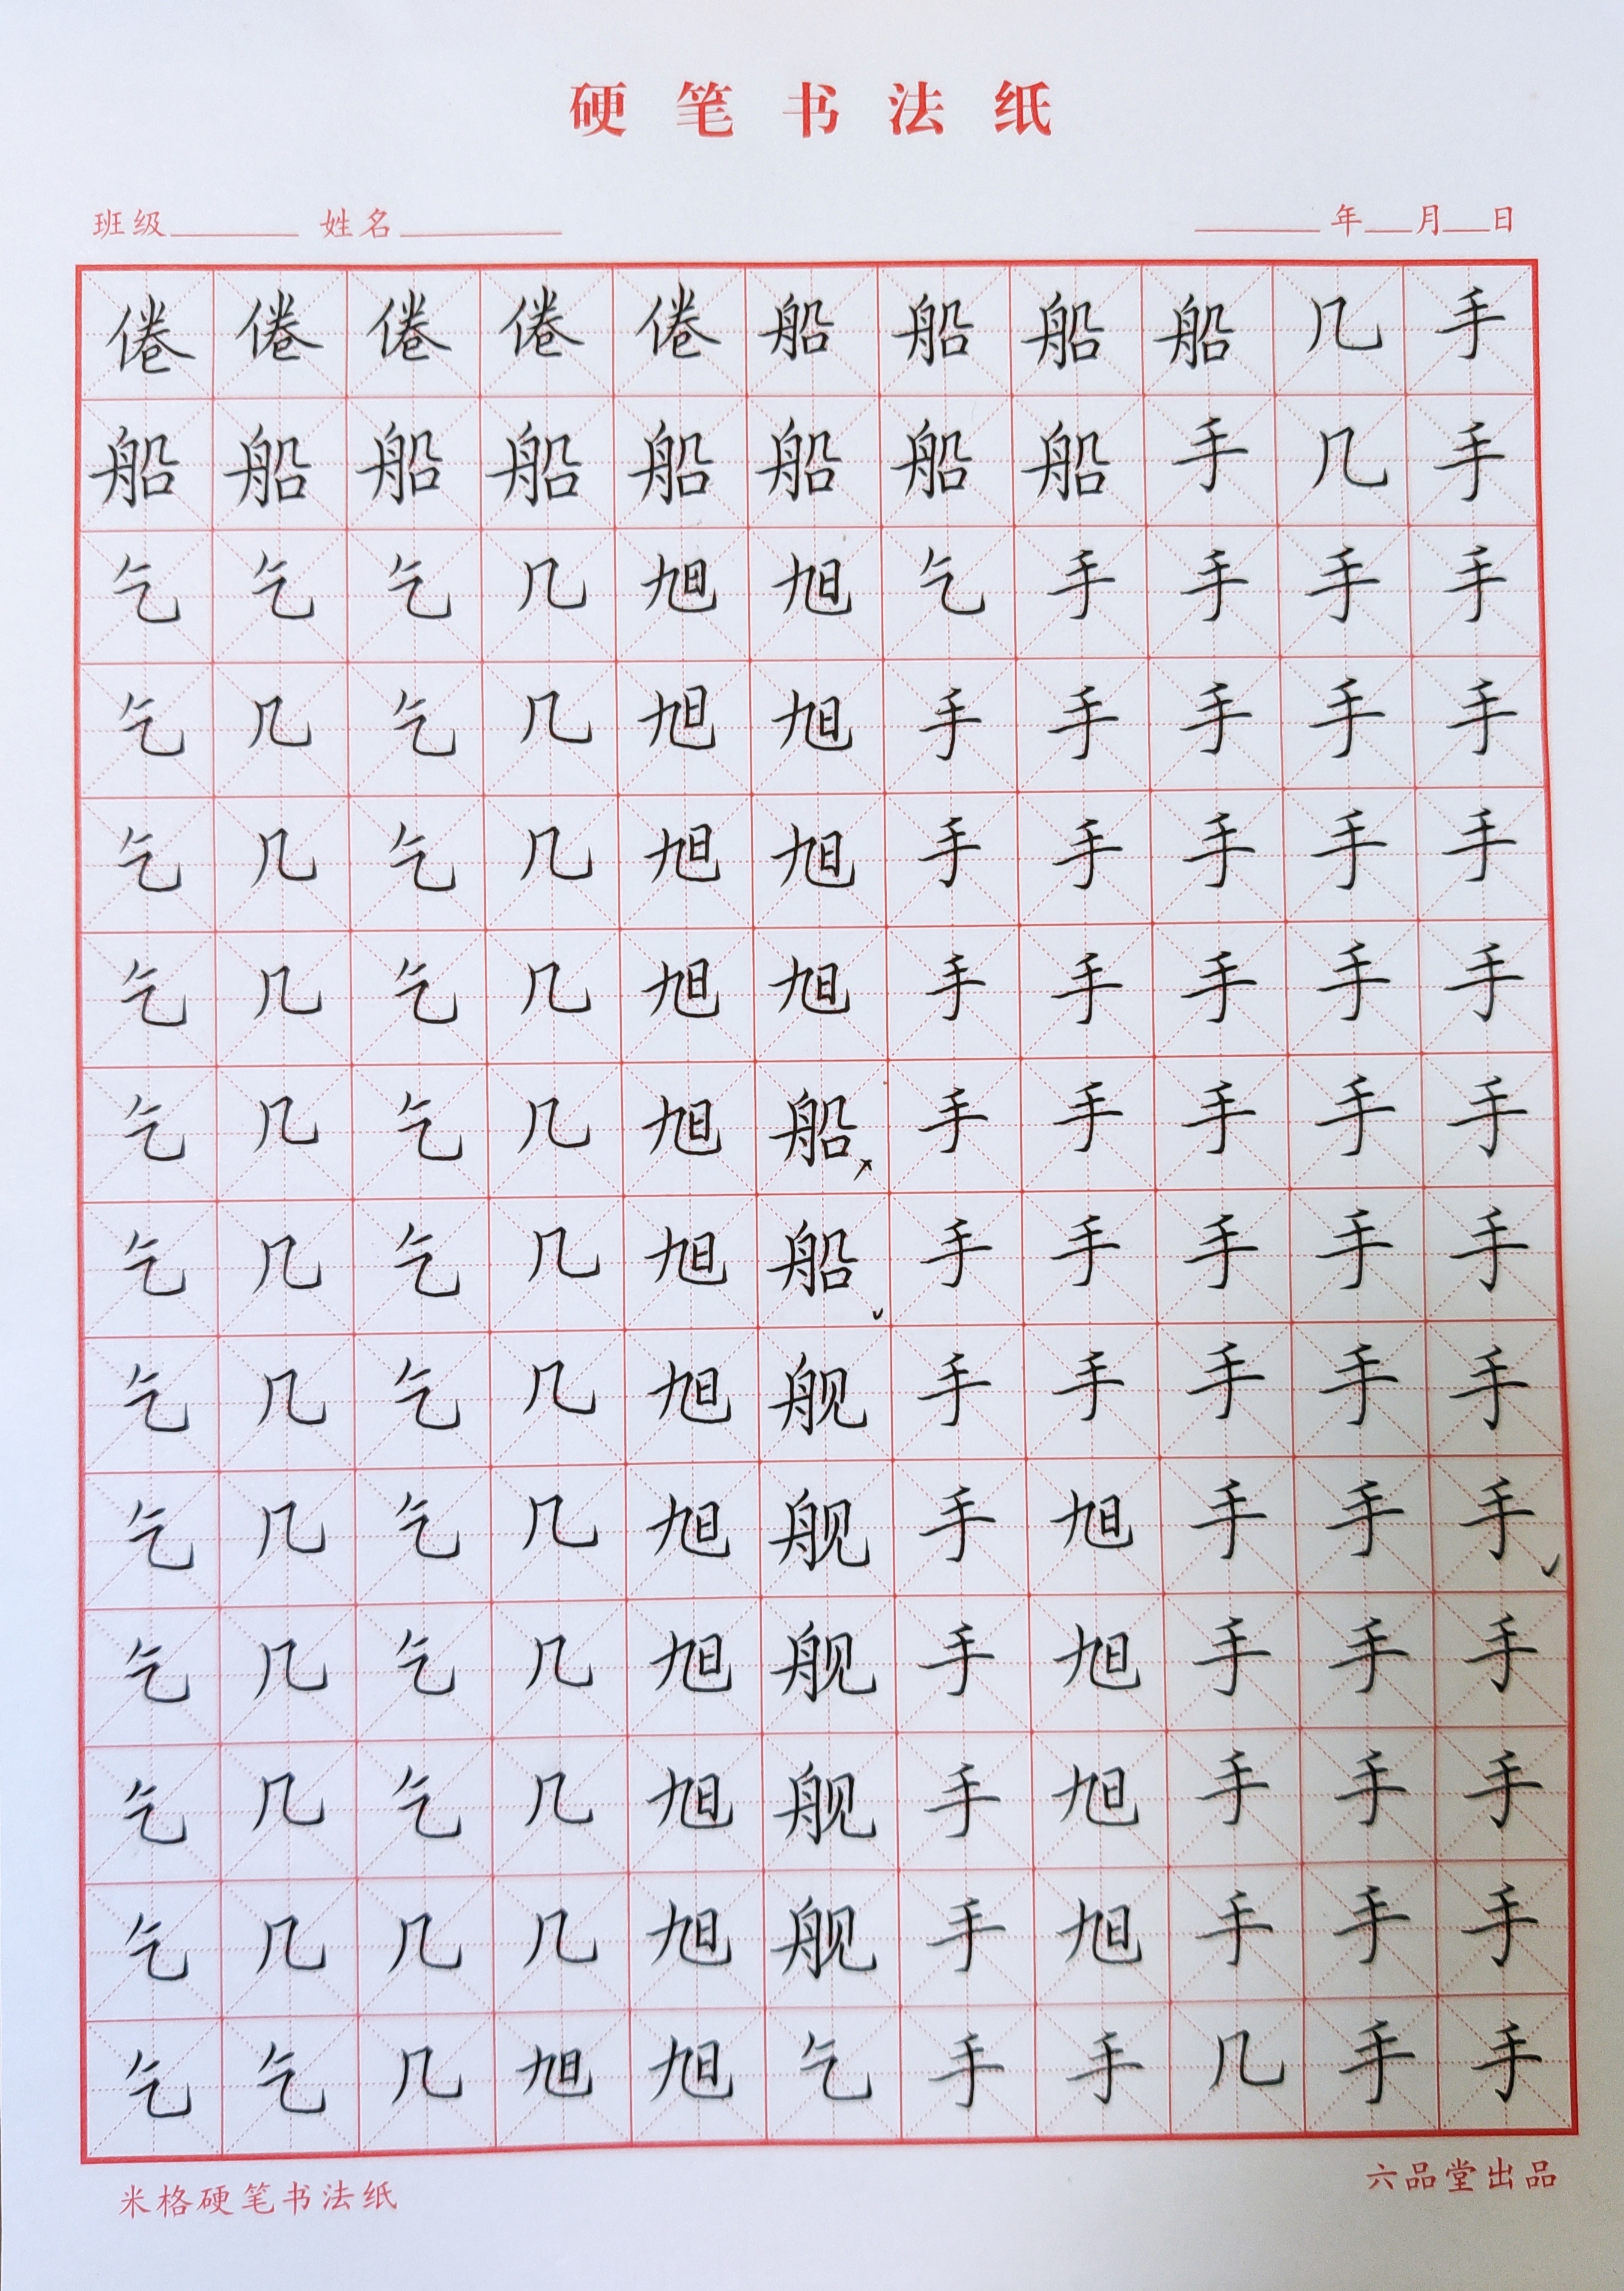 硬笔书法纸
班级 姓名 年 月 日
倦倦倦倦倦船船船船几手
船船船船船船船船手几手
乞乞乞几旭旭乞手手手手
乞几乞几旭旭手手手手手
乞几乞几旭旭手手手手手
乞几乞几旭旭手手手手手
乞几乞几旭船手手手手手
乞几乞几旭船手手手手手
乞几乞几旭舰手手手手手
乞几乞几旭舰手旭手手手
乞几乞几旭舰手旭手手手
乞几乞几旭舰手旭手手手
乞几几几旭舰手旭手手手
乞乞几旭旭乞手手几手手
米格硬笔书法纸 六品堂出品